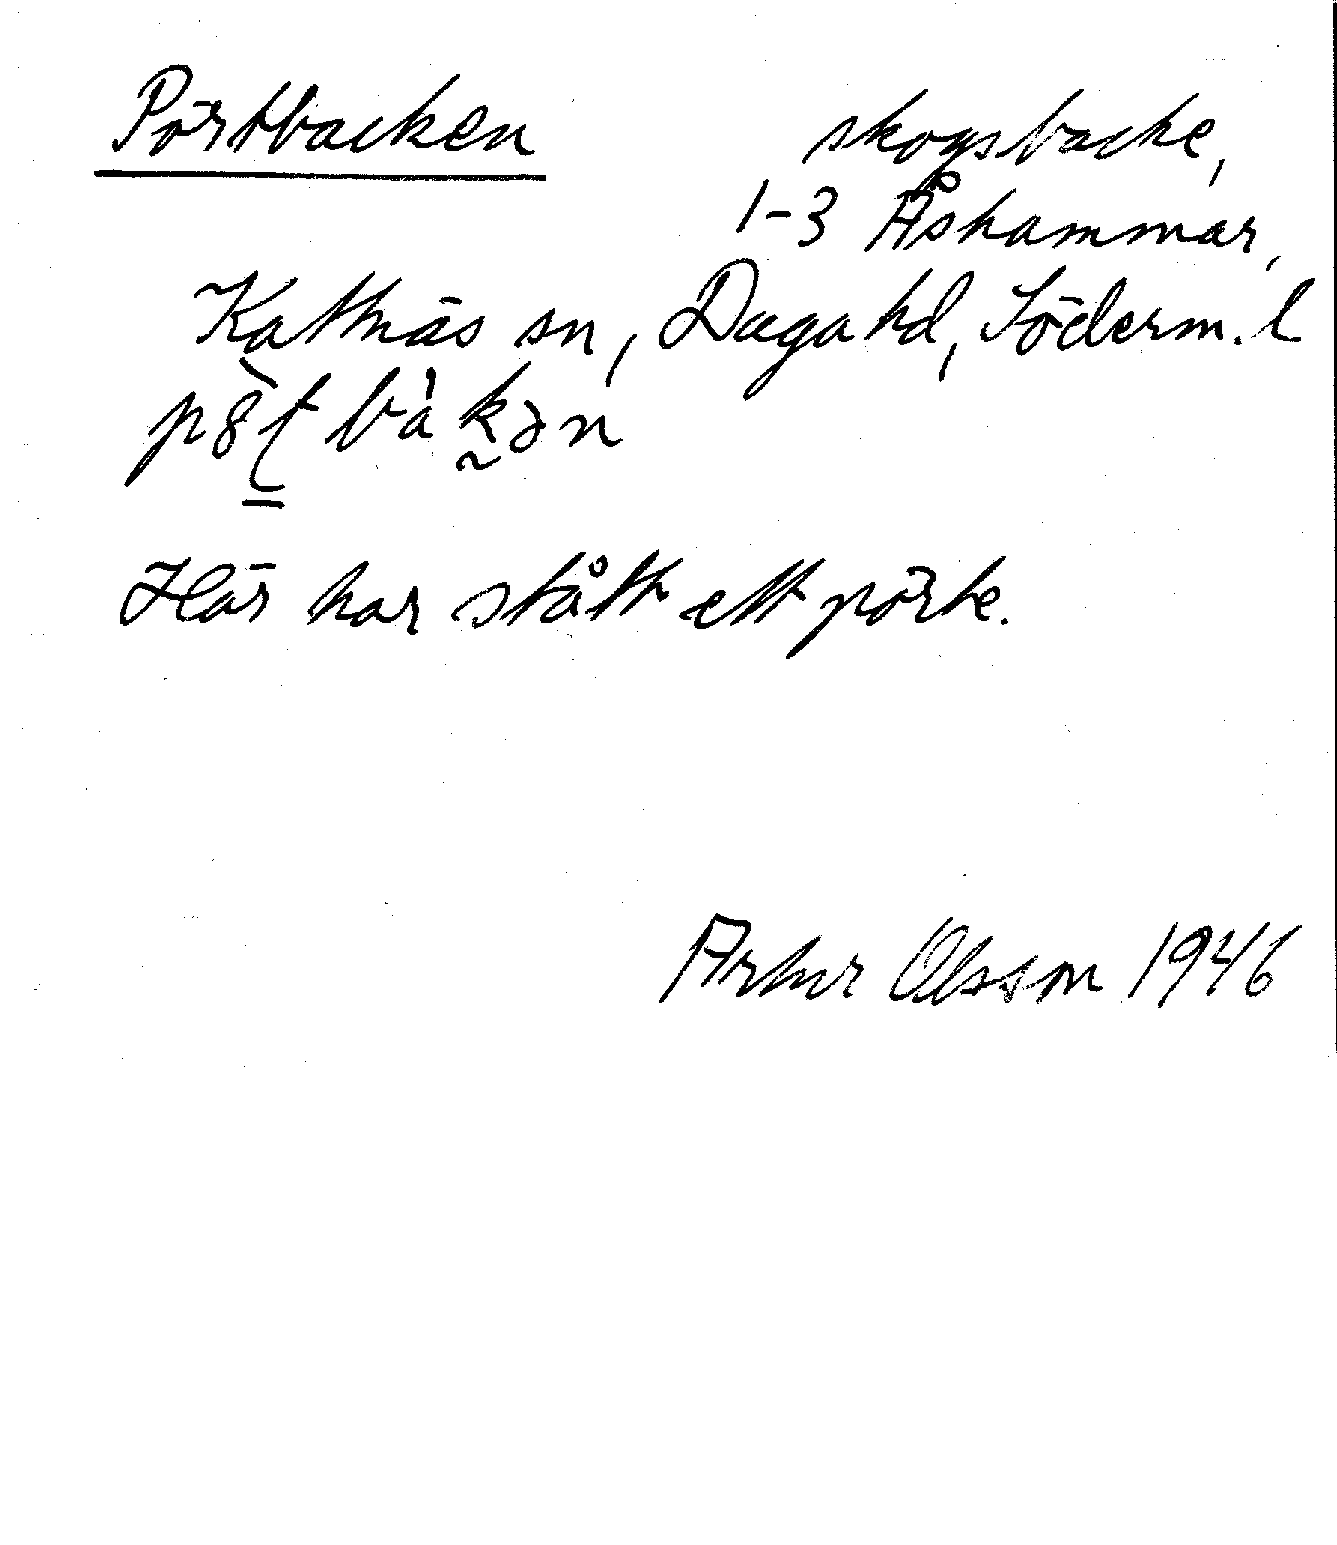 Pörtbacken
skogsbacke,
1-3 Åshammar,
Kattnäs sn, Daga hd, Söderm. l
Här har stått ett pörte.
Artur Olsson 1946